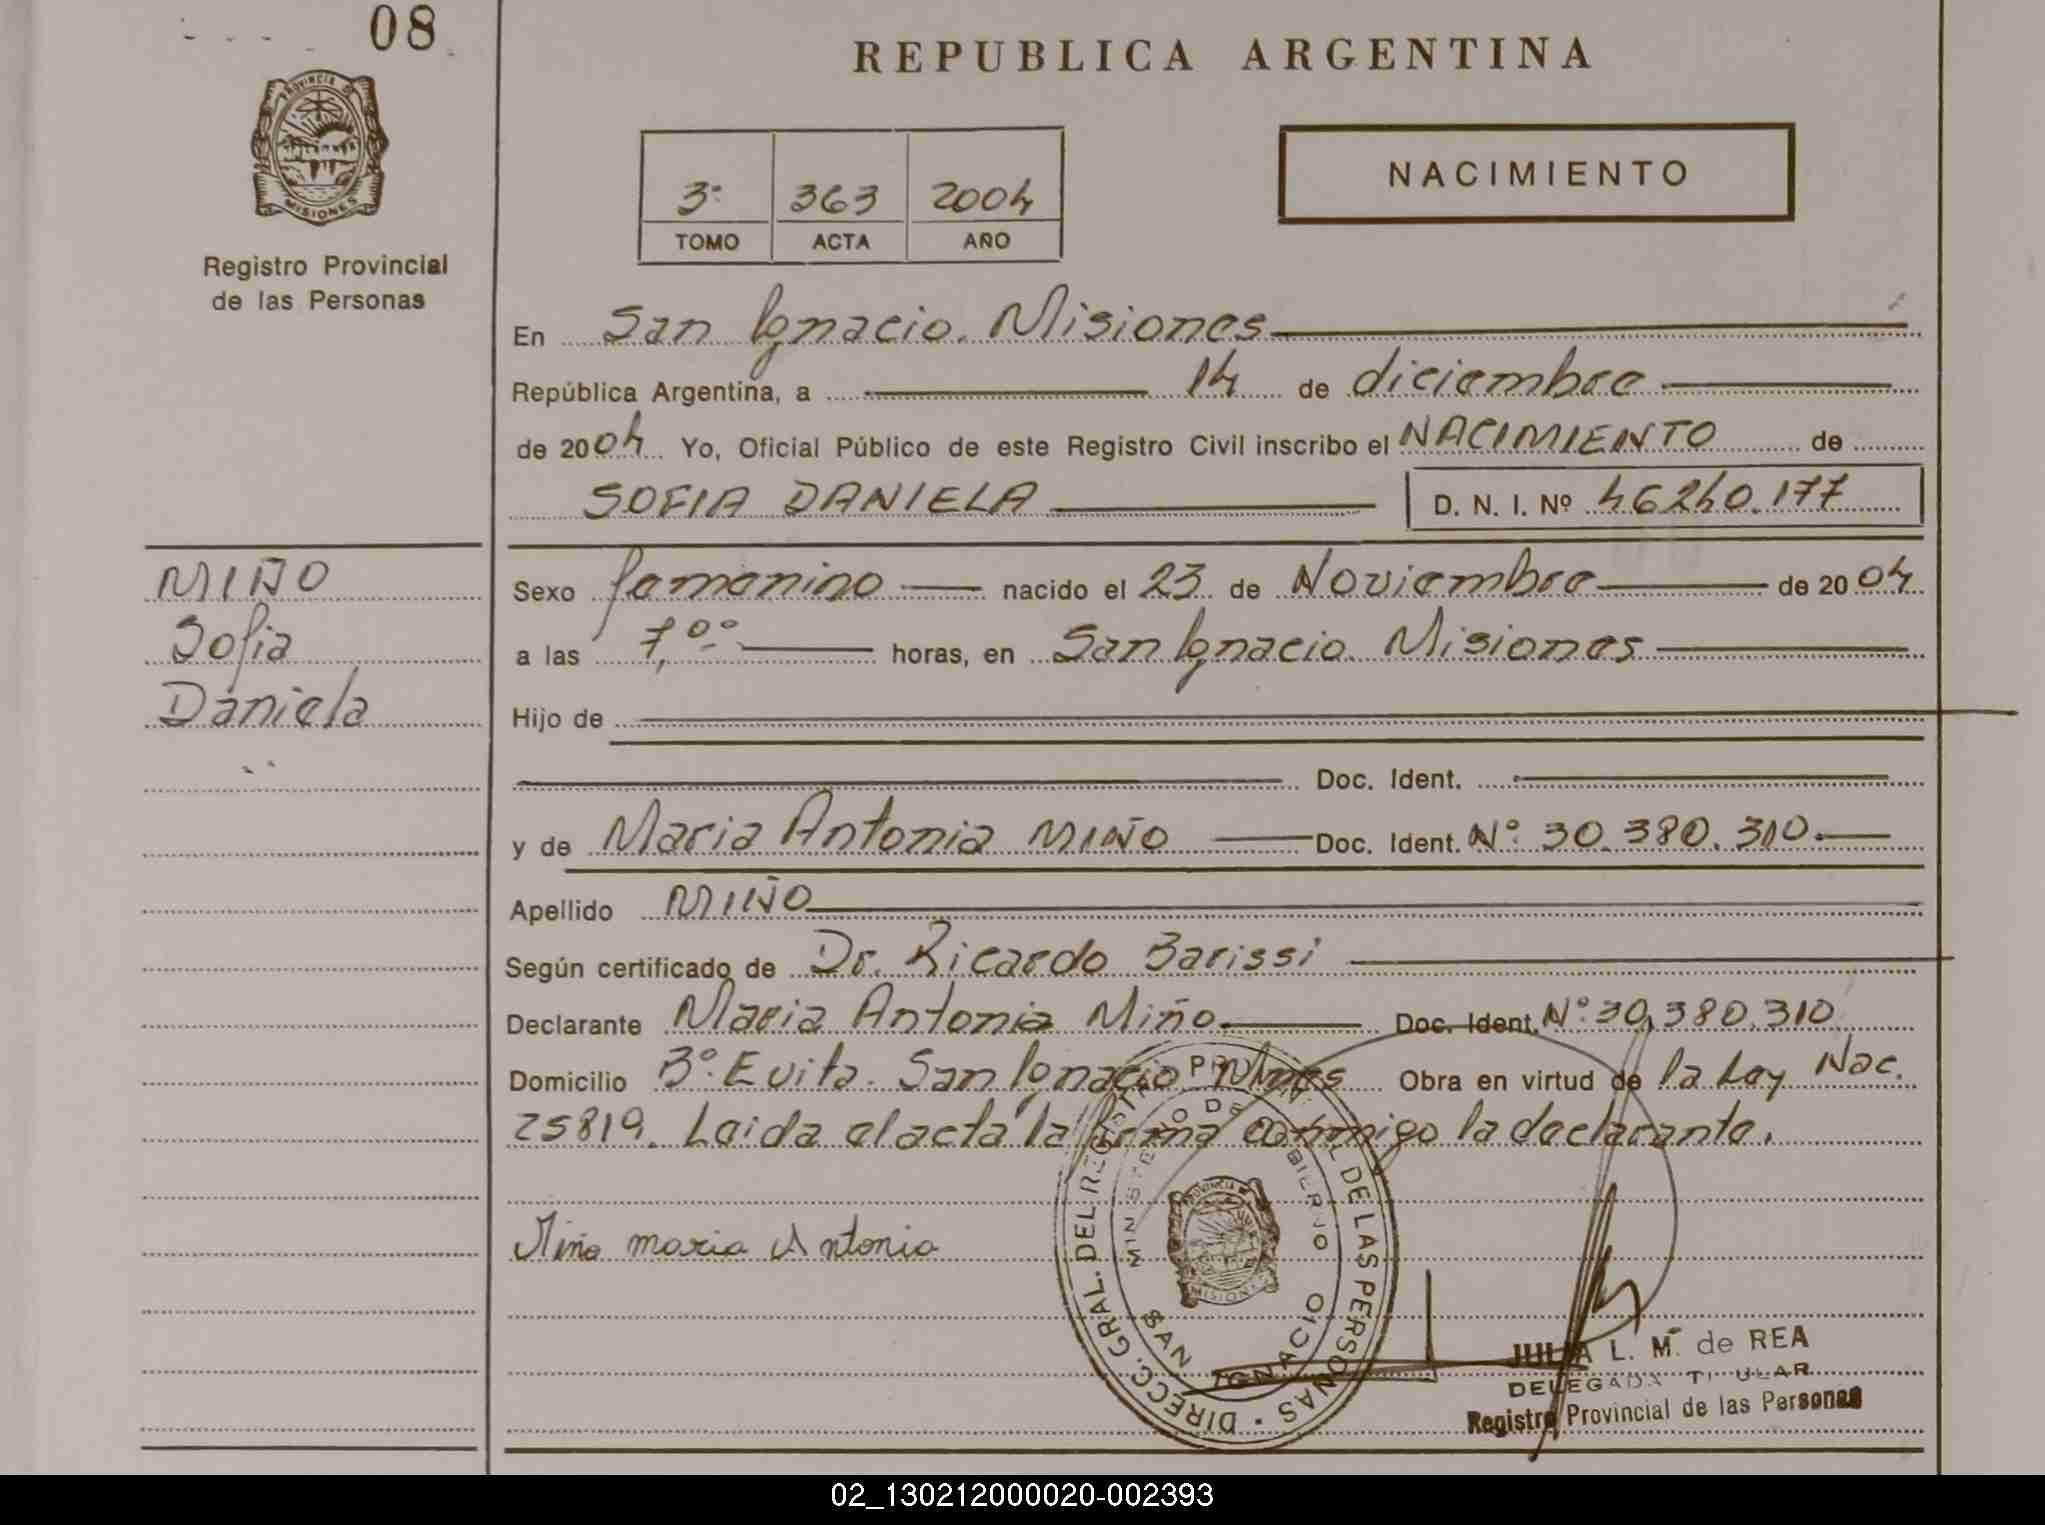 08
REPUBLICA ARGENTINA
PROVINCIA DE
MISIONES
NACIMIENTO
3º 363 2004
TOMO ACTA AÑO
Registro Provincial
de las Personas
En San Ignacio. Misiones
República Argentina, a 14 de diciembre
de 2004 Yo, Oficial Público de este Registro Civil inscribo el NACIMIENTO de
SOFIA DANIELA D. N. I. Nº 46240.177
MIÑO
Sofia
Daniela
Sexo femenino nacido el 23 de Noviembre de 2004
a las 7,00 horas, en San Ignacio. Misiones
Hijo de
Doc. Ident.
y de Maria Antonia MIÑO Doc. Ident. Nº 30.380.310.
Apellido MIÑO
Según certificado de Dr. Ricardo Barissi
Declarante Maria Antonia Miño Doc. Ident. Nº 30.380.310
Domicilio Bº Evita. San Ignacio Mnes Obra en virtud de la Ley Nac.
25819. Leida el acta la firma conmigo la declarante.
Miño maria Antonia
DIRECC. GRAL. DEL REGISTRO PROVINCIAL DE LAS PERSONAS
MINISTERIO DE GOBIERNO
PROVINCIA DE
MISIONES
SAN IGNACIO
JULIA L. M. de REA
DELEGADA TITULAR
Registro Provincial de las Personas
02_130212000020-002393